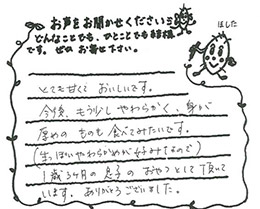 お声をお聞かせください
どんなことでも、ひとことでも結構
です。ぜひ お寄せ下さい。
とても甘くて おいしいです。
今後、もう少し やわらかく、身が
厚めの ものも 食べてみたいです。
(生っぽいやわらかめが好みなので)
1歳3ヶ月の 息子の おやつとして 頂いて
います。ありがとうございました。